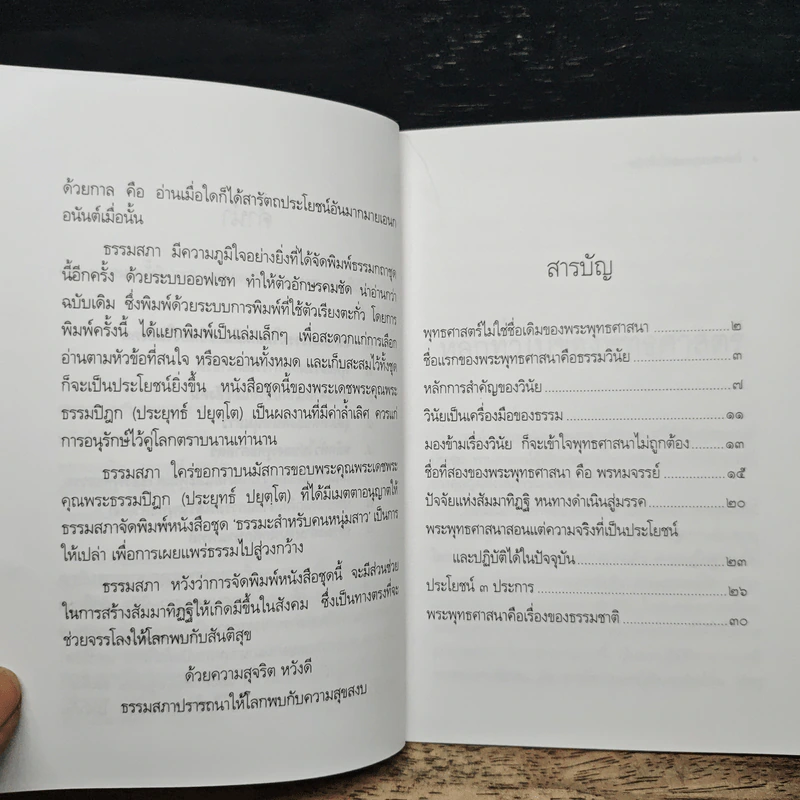 ด้วยกาล คือ อ่านเมื่อใดก็ได้สารัตถประโยชน์อันมากมายเอนก
อนันต์เมื่อนั้น
ธรรมสภา มีความภูมิใจอย่างยิ่งที่ได้จัดพิมพ์ธรรมกถาชุด
นี้อีกครั้ง ด้วยระบบออฟเซท ทำให้ตัวอักษรคมชัด น่าอ่านกว่า
ฉบับเดิม ซึ่งพิมพ์ด้วยระบบการพิมพ์ที่ใช้ตัวเรียงตะกั่ว โดยการ
พิมพ์ครั้งนี้ ได้แยกพิมพ์เป็นเล่มเล็กๆ เพื่อสะดวกแก่การเลือก
อ่านตามหัวข้อที่สนใจ หรือจะอ่านทั้งหมด และเก็บสะสมไว้ทั้งชุด
ก็จะเป็นประโยชน์ยิ่งขึ้น หนังสือชุดนี้ของพระเดชพระคุณพระ
ธรรมปิฎก (ประยุทธ์ ปยุตฺโต) เป็นผลงานที่มีค่าล้ำเลิศ ควรแก่
การอนุรักษ์ไว้คู่โลกตราบนานเท่านาน
ธรรมสภา ใคร่ขอกราบนมัสการขอบพระคุณพระเดชพระ
คุณพระธรรมปิฎก (ประยุทธ์ ปยุตฺโต) ที่ได้มีเมตตาอนุญาตให้
ธรรมสภาจัดพิมพ์หนังสือชุด 'ธรรมะสำหรับคนหนุ่มสาว' เป็นการ
ให้เปล่า เพื่อการเผยแพร่ธรรมไปสู่วงกว้าง
ธรรมสภา หวังว่าการจัดพิมพ์หนังสือชุดนี้ จะมีส่วนช่วย
ในการสร้างสัมมาทิฏฐิให้เกิดมีขึ้นในสังคม ซึ่งเป็นทางตรงที่จะ
ช่วยจรรโลงให้โลกพบกับสันติสุข
ด้วยความสุจริต หวังดี
ธรรมสภาปรารถนาให้โลกพบกับความสุขสงบ
สารบัญ
พุทธศาสตร์ไม่ใช่ชื่อเดิมของพระพุทธศาสนา ....................๒
ชื่อแรกของพระพุทธศาสนาคือธรรมวินัย ........................๓
หลักการสำคัญของวินัย ............................................๗
วินัยเป็นเครื่องมือของธรรม .....................................๑๑
มองข้ามเรื่องวินัย ก็จะเข้าใจพุทธศาสนาไม่ถูกต้อง ..........๑๓
ชื่อที่สองของพระพุทธศาสนา คือ พรหมจรรย์ .................๑๕
ปัจจัยแห่งสัมมาทิฏฐิ หนทางดำเนินสู่มรรค ...................๒๐
พระพุทธศาสนาสอนแต่ความจริงที่เป็นประโยชน์
และปฏิบัติได้ในปัจจุบัน ....................................๒๓
ประโยชน์ ๓ ประการ ..............................................๒๖
พระพุทธศาสนาคือเรื่องของธรรมชาติ ..........................๓๐